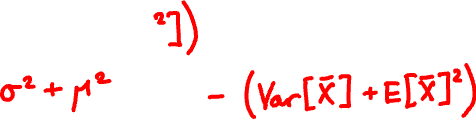 ²])
σ² + μ² - (Var[X̄] + E[X̄]²)